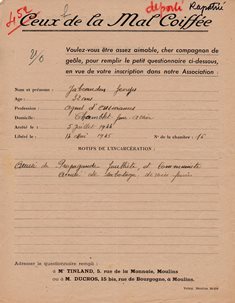 45e déporté Rapatrié
Ceux de la Mal Coiffée
Voulez-vous être assez aimable, cher compagnon de
geôle, pour remplir le petit questionnaire ci-dessous,
en vue de votre inscription dans notre Association :
Nom et prénoms : Georges
Age : 32 ans
Profession : agent d'assurances
Domicile : Chamblet
Arrêté le : 5 juillet 1944
Libéré le : 13 Mai 1945 N° de la chambre : 16
MOTIFS DE L'INCARCÉRATION :
Accusé de Propagande Gaulliste et Communiste
Accusé de sabotage de voies
Adresser le questionnaire rempli :
à Mr TINLAND, 5, rue de la Monnaie, Moulins
ou à M. DUCROS, 15 bis, rue de Bourgogne, à Moulins